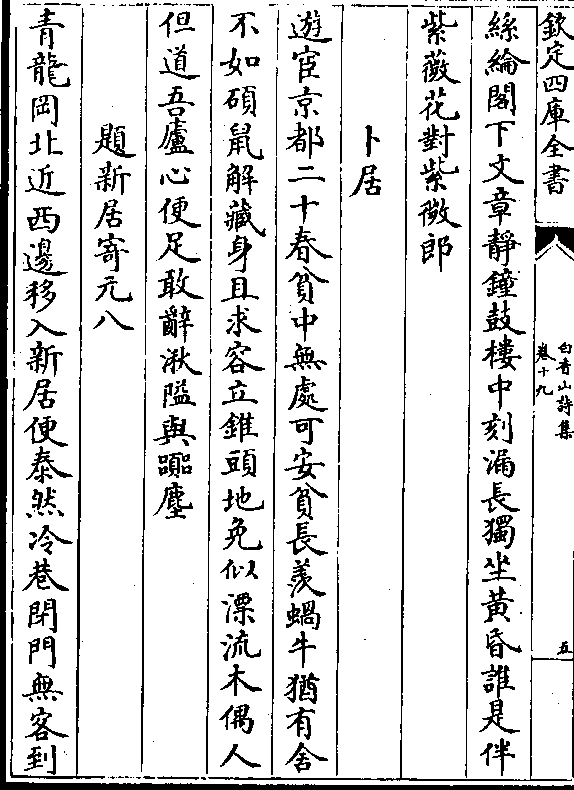 欽定四庫全書
白香山詩集
卷十九
五
絲綸閣下文章靜鐘鼓樓中刻漏長獨坐黄昏誰是伴
紫薇花對紫微郎
卜居
遊宦京都二十春貧中無處可安貧長羨蝸牛猶有舍
不如碩鼠解藏身且求容立錐頭地免似漂流木偶人
但道吾廬心便足敢辭湫隘與囂塵
題新居寄元八
青龍岡北近西邊移入新居便泰然冷巷閉門無客到